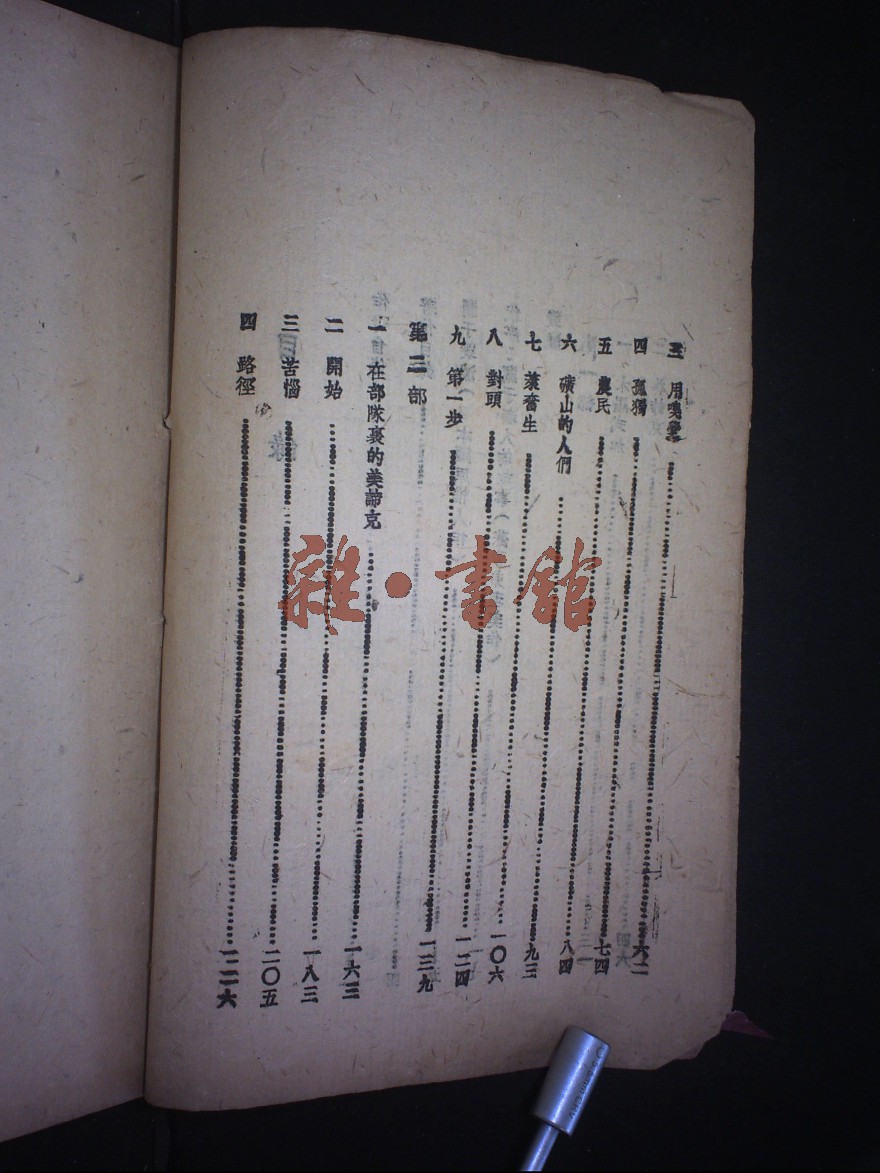 三 用嗅覺 六二
四 孤獨 七四
五 農民 八四
六 礦山的人們 九三
七 萊奮生 一〇六
八 對頭 一二四
九 第一步 一三九
第二部
一 在部隊裏的美諦克 一六三
二 開始 一八三
三 苦惱 二〇五
四 路徑 二二六
雜·書館